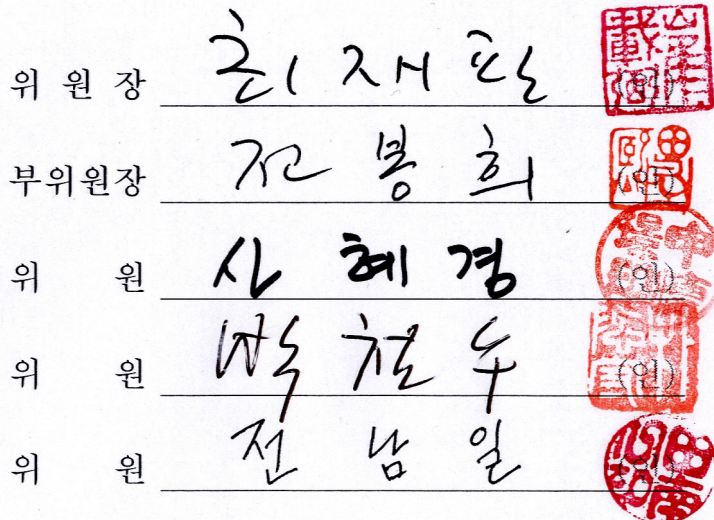 위 원 장 최 재 필 (인)
부위원장 전 봉 희 (인)
위 원 신 혜 경 (인)
위 원 박 철 수 (인)
위 원 전 남 일 (인)